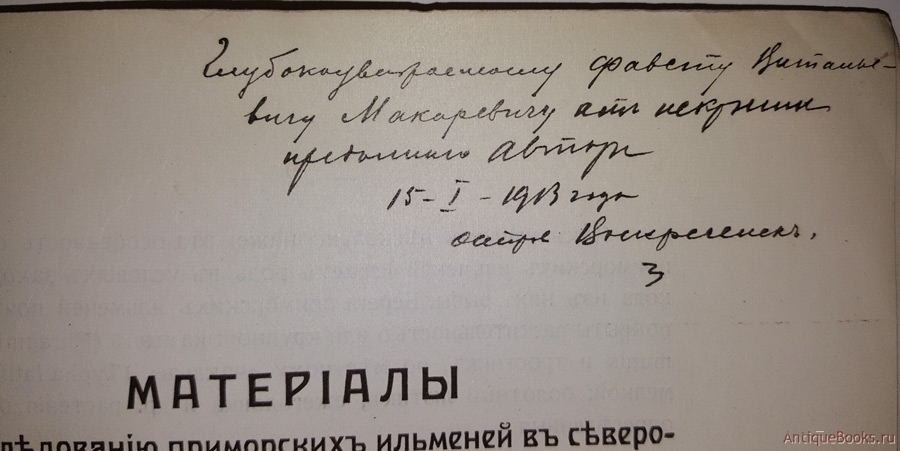 Глубокоуважаемому Фавсту Виталье-
вичу Макаревичу отъ искренно
преданнаго Автора
15-I-1913 года
островъ Воскресенскъ.
З
МАТЕРІАЛЫ
лѣдованію приморскихъ ильменей въ сѣверо-
AntiqueBooks.ru